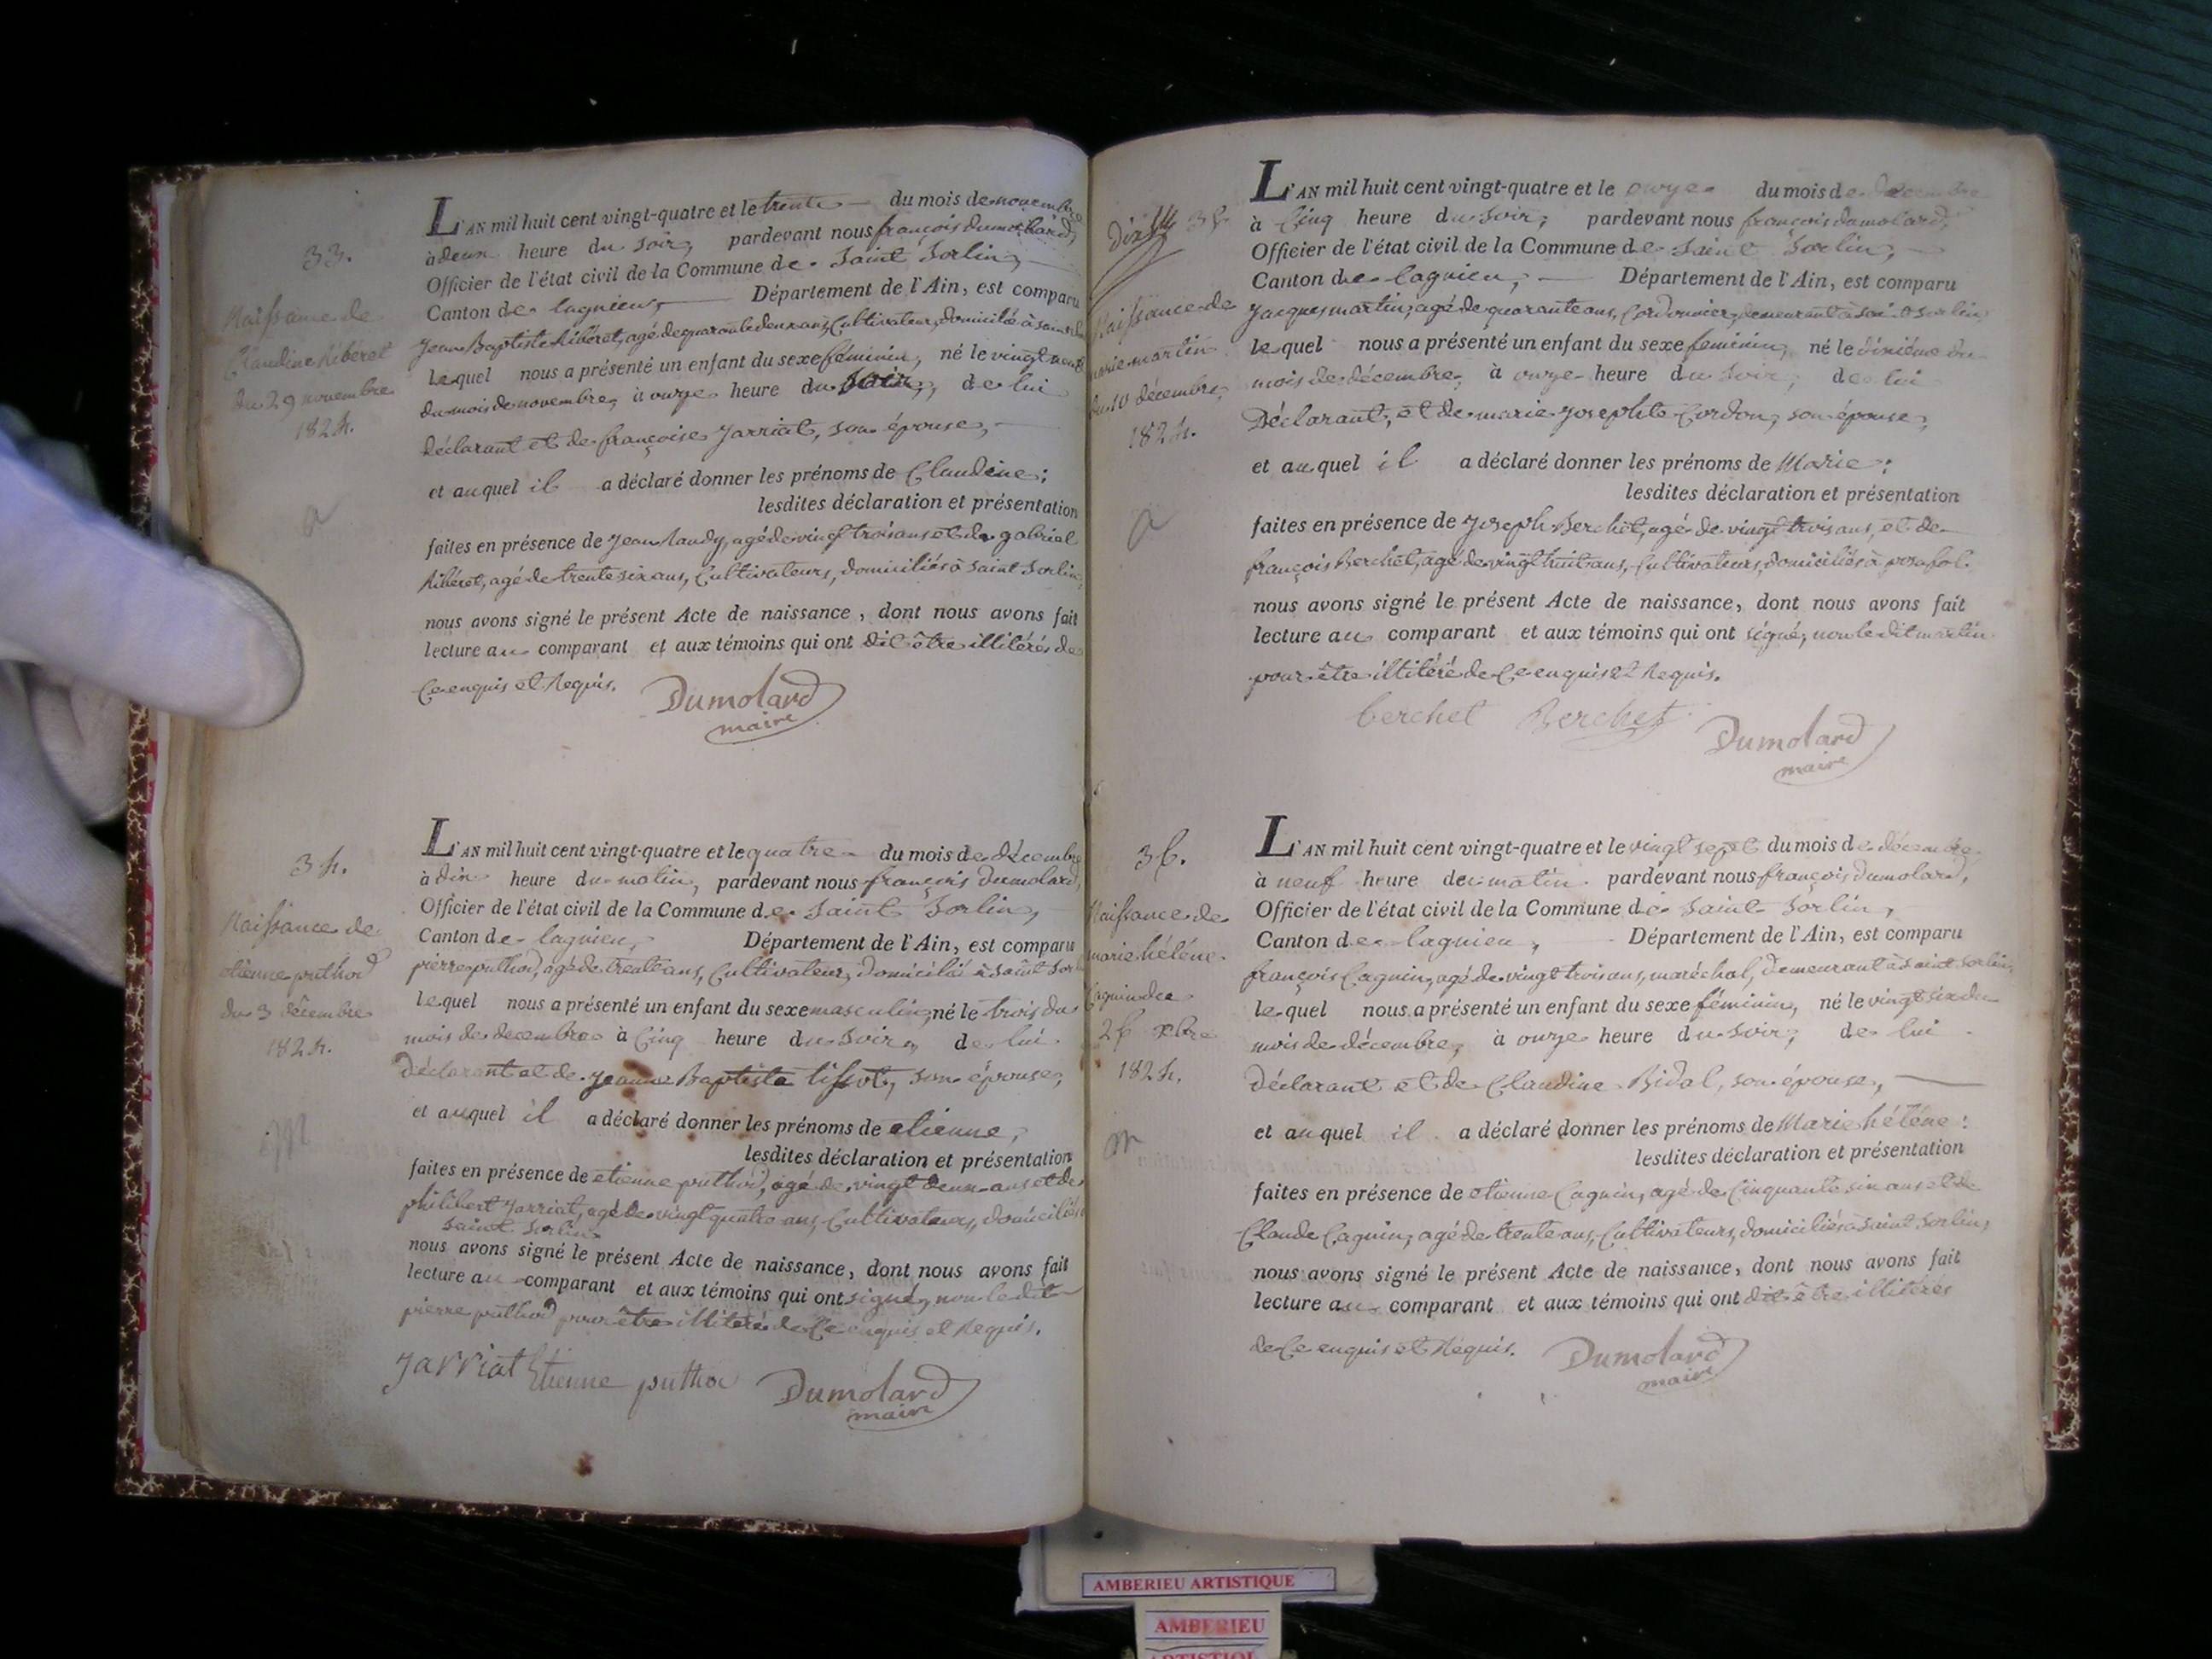 33.
Naissance de
Claudine Ribéret
du 29 novembre
1824.
a
L'AN mil huit cent vingt-quatre et le trente du mois de novembre
à deux heure du soir, pardevant nous françois dumolard,
Officier de l'état civil de la Commune de Saint Sorlin,
Canton de lagnieu, Département de l'Ain, est comparu
Jean Baptiste Ribéret, agé de quarante deux ans, Cultivateur, domicilié à saint
lequel nous a présenté un enfant du sexe féminin, né le vingt neuf
du mois de novembre, à onze heure du soir, de lui
déclarant et de françoise Jarriat, son épouse,
et auquel il a déclaré donner les prénoms de Claudine;
lesdites déclaration et présentation
faites en présence de Jean Naudy, agé de vingt trois ans et de gabriel
Ribéret, agé de trente six ans, Cultivateurs, domiciliés à Saint Sorlin,
nous avons signé le présent Acte de naissance, dont nous avons fait
lecture au comparant et aux témoins qui ont dit être illitérés de
Ce enquis et Requis.
Dumolard
maire
34.
Naissance de
etienne puthod
du 3 décembre
1824.
m
L'AN mil huit cent vingt-quatre et le quatre du mois de décembre
à dix heure du matin, pardevant nous françois dumolard,
Officier de l'état civil de la Commune de Saint Sorlin,
Canton de lagnieu, Département de l'Ain, est comparu
pierre puthod, agé de trente ans, Cultivateur, domicilié à saint Sorlin
lequel nous a présenté un enfant du sexe masculin, né le trois du
mois de decembre à Cinq heure du soir, de lui
déclarant et de Jeanne Baptiste tissot, son épouse,
et auquel il a déclaré donner les prénoms de etienne,
lesdites déclaration et présentation
faites en présence de etienne puthod, agé de vingt deux ans et de
philibert Jarriat, agé de vingt quatre ans, Cultivateurs, domiciliés
saint Sorlin
nous avons signé le présent Acte de naissance, dont nous avons fait
lecture au comparant et aux témoins qui ont signé, non le dit
pierre puthod pour être illitéré de Ce enquis et Requis.
Jarriat Etienne puthod Dumolard
maire
35
Naissance de
marie martin
du 10 décembre,
1824.
a
L'AN mil huit cent vingt-quatre et le onze du mois de decembre
à Cinq heure du soir, pardevant nous françois dumolard,
Officier de l'état civil de la Commune de Saint Sorlin,
Canton de lagnieu, Département de l'Ain, est comparu
Jacques martin, agé de quarante ans, Cordonnier, demeurant à saint Sorlin,
lequel nous a présenté un enfant du sexe feminin, né le dixiéme du
mois de décembre, à onze heure du soir, de lui
Déclarant, et de marie Josephte Cordon, son épouse,
et auquel il a déclaré donner les prénoms de Marie;
lesdites déclaration et présentation
faites en présence de Joseph Berchet, agé de vingt trois ans, et de
françois Berchet, agé de vingt huit ans, Cultivateurs, domiciliés à
nous avons signé le présent Acte de naissance, dont nous avons fait
lecture au comparant et aux témoins qui ont signé, non le dit martin
pour être illitéré de Ce enquis et Requis.
berchet Berchet Dumolard
maire
36.
Naissance de
marie héléne
Caguin du
26 xbre
1824.
m
L'AN mil huit cent vingt-quatre et le vingt sept du mois de décembre
à neuf heure du matin pardevant nous françois Dumolard,
Officier de l'état civil de la Commune de Saint Sorlin,
Canton de lagnieu, Département de l'Ain, est comparu
françois Caguin, agé de vingt trois ans, maréchal, demeurant à saint Sorlin,
lequel nous a présenté un enfant du sexe féminin, né le vingt six du
mois de décembre, à onze heure du soir, de lui
déclarant et de Claudine Bidal, son épouse,
et auquel il a déclaré donner les prénoms de Marie héléne:
lesdites déclaration et présentation
faites en présence de etienne Caguin, agé de Cinquante six ans et de
Claude Caguin, agé de trente ans, Cultivateurs, domiciliés à saint Sorlin,
nous avons signé le présent Acte de naissance, dont nous avons fait
lecture au comparant et aux témoins qui ont dit être illitérés
de Ce enquis et Requis. Dumolard
maire
AMBERIEU ARTISTIQUE
AMBERIEU
ARTISTIQUE